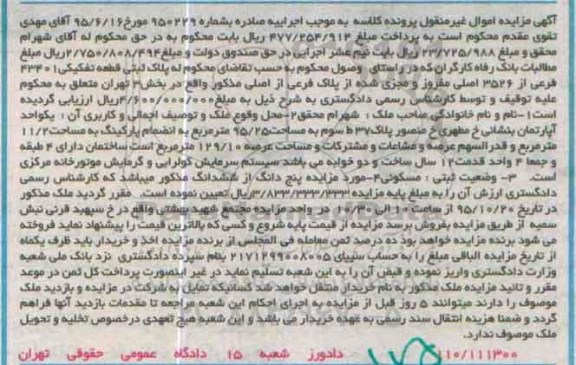 آگهی مزایده اموال غیرمنقول پرونده کلاسه به موجب اجراییه صادره بشماره ۹۵۰۲۲۹ مورخ ۹۵/۶/۱۶ آقای مهدی
تقوی مقدم محکوم است به پرداخت مبلغ ۴۷۷/۲۵۴/۹۱۴ ریال بابت محکوم به در حق محکوم له آقای شهرام
محقق و مبلغ ۲۳/۷۲۵/۹۸۸ ریال بابت نیم عشر اجرایی در حق صندوق دولت و مبلغ ۲/۷۵۰/۸۰۸/۴۹۴ریال مبلغ
مطالبات بانک رفاه کارگران که در راستای وصول محکوم به حسب تقاضای محکوم له پلاک ثبتی قطعه تفکیکی۴۳۴۰۱
فرعی از ۳۵۲۶ اصلی مفروز و مجزی شده از پلاک فرعی از اصلی مذکور واقع در بخش۳ تهران متعلق به محکوم
علیه توقیف و توسط کارشناس رسمی دادگستری به شرح ذیل به مبلغ۴/۶۰۰/۰۰۰/۰۰۰ریال ارزیابی گردیده
است۱-نام و نام خانوادگی صاحب ملک : شهرام محقق۲-محل وقوع ملک و توصیف اجمالی و کاربری آن : یکواحد
آپارتمان بنشانی خ مطهری خ منصور پلاک۳۷ ط سوم به مساحت۹۵/۲۵ مترمربع به انضمام پارکینگ به مساحت۱۱/۲
مترمربع و قدر السهم عرصه و مشاعات و مشترکات و مساحت عرصه ۱۲۹/۱۰ مترمربع است ساختمان دارای ۴ طبقه
و جمعا ۴ واحد قدمت۱۲ سال ساخت و دو خوابه می باشد سیستم سرمایش کولرابی و گرمایش موتورخانه مرکزی
است. ۳- وضعیت ثبتی : مسکونی۴-مورد مزایده پنج دانگ از ششدانگ مذکور میباشد که کارشناس رسمی
دادگستری ارزش آن را به مبلغ پایه مزایده ۳/۸۳۳/۳۳۳/۳۳۳ریال تعیین نموده است. مقرر گردید ملک مذکور
در تاریخ ۹۵/۱۰/۲۰ از ساعت ۱۰ الی ۱۰/۳۰ در واحد مزایده مجتمع شهید بهشتی واقع در خ سپهبد قرنی نبش
سمیه از طریق مزایده بفروش برسد مزایده از قیمت پایه شروع و کسی که بالاترین قیمت را پیشنهاد نماید فروخته
می شود برنده مزایده خواهد بود ده درصد ثمن معامله فی المجلس از برنده مزایده اخذ و خریدار باید ظرف یکماه
از تاریخ مزایده الباقی مبلغ را به حساب سیبای ۲۱۷۱۲۹۹۰۰۸۰۰۵ بنام سپرده دادگستری نزد بانک ملی شعبه
وزارت دادگستری واریز نموده و قبض آن را به این شعبه تسلیم نماید در غیر اینصورت پرداخت کل ثمن در موعد
مقرر و تائید مزایده ملک مذکور به نام خریدار منتقل خواهد شد کسانیکه تمایل به شرکت در مزایده و بازدید ملک
موصوف را دارند میتوانند ۵ روز قبل از مزایده به اجرای احکام این شعبه مراجعه تا مقدمات بازدید آنها فراهم
گردد و ضمنا هزینه انتقال سند رسمی به عهده خریدار می باشد و این شعبه هیچ تعهدی درخصوص تخلیه و تحویل
ملک موصوف ندارد.
۱۱۰/۱۱۱۳۰۰ دادورز شعبه ۱۵ دادگاه عمومی حقوقی تهران